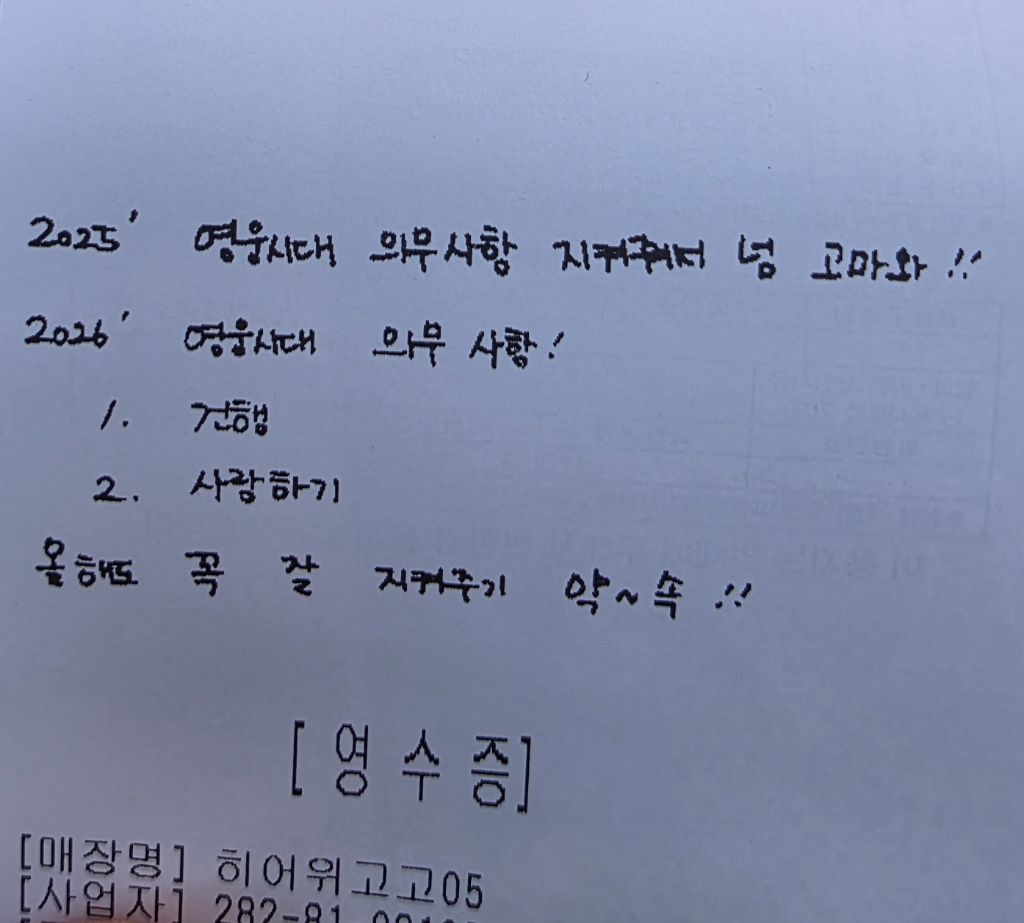 2025' 영웅시대 의무사항 지켜줘서 넘 고마와!!
2026' 영웅시대 의무 사항!
1. 건행
2. 사랑하기
올해도 꼭 잘 지켜주기 약~속!!
[영수증]
[매장명] 히어위고고05
[사업자]